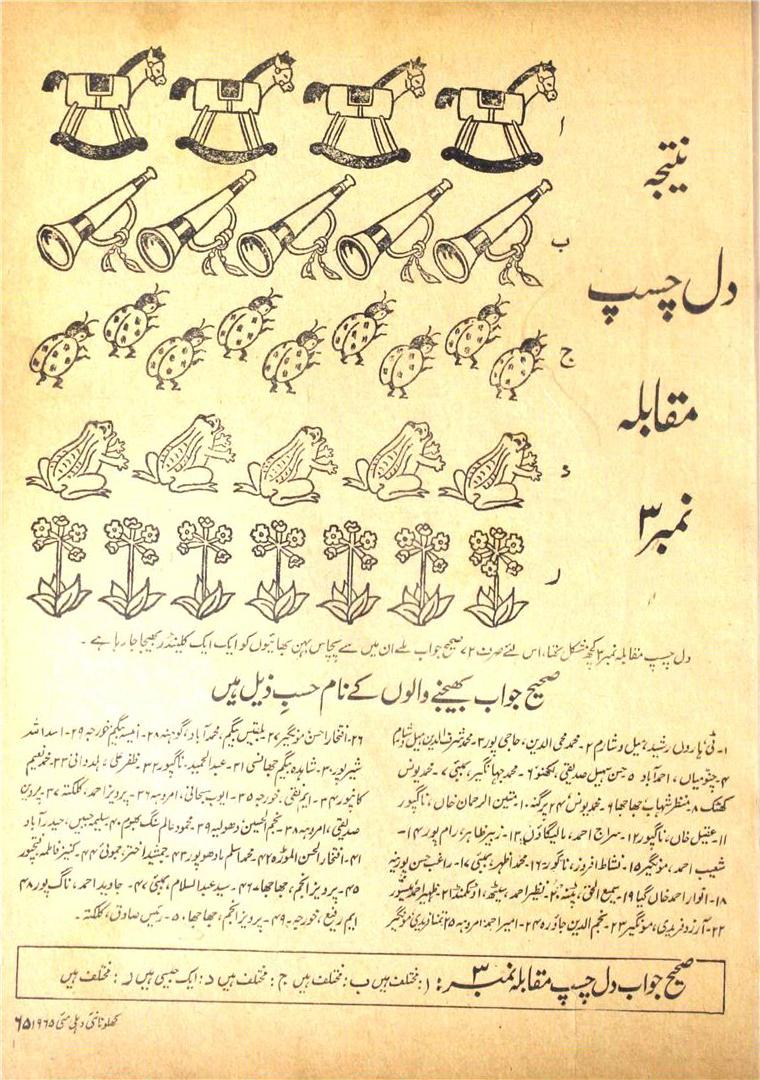 نتیجہ
دل چسپ
مقابلہ
نمبر ۳
ا
ب
ج
د
ر
دل چسپ مقابلہ نمبر ۳ کچھ مشکل تھا، اس لئے صرف ۷۲ صحیح جواب ملے ان میں سے پچاس بہن بھائیوں کو ایک ایک کلینڈر بھیجا جا رہا ہے۔
صحیح جواب بھیجنے والوں کے نام حسبِ ذیل ہیں
۱۔ ٹی ہارون رشید، میل وشارم ۲۔ محمد محی الدین، حاجی پور ۳۔ محمد شرف الدین میل وشارم
۴۔ چنومیاں، احمدآباد ۵۔ حسن سہیل صدیقی، لکھنؤ ۶۔ محمد جہانگیر، بمبئی ۷۔ محمد یونس
کٹک ۸۔ منظر شہاب، جھاجھا ۹۔ محمد یونس ۲۴ پرگنہ ۱۰۔ متین الرحمان خاں، ناگپور
۱۱۔ عتیل خاں، ناگپور ۱۲۔ سراج احمد، مالیگاؤں ۱۳۔ زبیر ظاہر، رام پور ۱۴۔
شعیب احمد، مونگیر ۱۵۔ نشاط افروز، ناگور ۱۶۔ محمد اظہر، بمبئی ۱۷۔ راغب حسن پورنیہ
۱۸۔ انوار احمد خاں گیا ۱۹۔ سمیع الحق، پٹنہ ۲۰۔ نظیر احمد سیٹھ، اوٹکمنڈ ۲۱۔ ظہیر احمد
۲۲۔ آرزو فریدی، مونگیر ۲۳۔ نجم الدین جاؤرہ ۲۴۔ امیر احمد، امروہہ ۲۵۔ تمنا فریدی مونگیر
۲۶۔ افتخار احسن مونگیر ۲۷۔ بلقیس بیگم، محمدآباد، گوہنہ ۲۸۔ انیسہ بیگم خورجہ ۲۹۔ اسداللہ
شیرپور ۳۰۔ شاہدہ بیگم جھانسی ۳۱۔ عبدالحمید، ناگپور ۳۲۔ ظفر علی، بلدوانی ۳۳۔ محمد نعیم
کانپور ۳۴۔ ایم نقی، خورجہ ۳۵۔ ایوب سبحانی، امروہہ ۳۶۔ پرویز احمد، کلکتہ ۳۷۔ پروین
صدیقی، امروہہ ۳۸۔ نجم الحسین دھولیہ ۳۹۔ محمود عالم سنگ بھوم ۴۰۔ سلیمہ جبیں، حیدرآباد
۴۱۔ افتخار الحسن الموڑہ ۴۲۔ محمد اسلم مادھوپور ۴۳۔ جمشید اختر، جموئی ۴۴۔ کنیز فاطمہ فتحپور
۴۵۔ پرویز انجم، جھاجھا ۴۶۔ سید عبدالسلام، بمبئی ۴۷۔ جاوید احمد، ناگ پور ۴۸۔
ایم رفیع، خورجہ ۴۹۔ پرویز انجم، جھاجھا ۵۰۔ رئیس صادق، کلکتہ۔
صحیح جواب دل چسپ مقابلہ نمبر ۳: ا: مختلف ہیں ب: مختلف ہیں ج: مختلف ہیں د: ایک جیسی ہیں ر: مختلف ہیں
کھلونا نئی دہلی مئی ۱۹۶۵ ۶۵